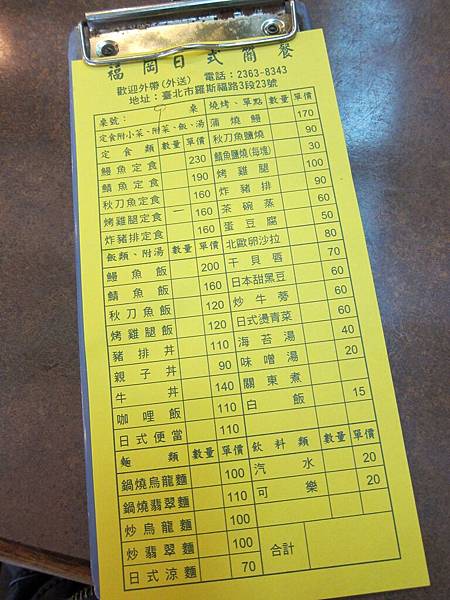 福岡日式簡餐
歡迎外帶(外送) 電話：2363-8343
地址：臺北市羅斯福路3段23號
桌號： 桌
定食附小菜、附菜、飯、湯
定食類 數量 單價
鰻魚定食 230
鯖魚定食 190
秋刀魚定食 160
烤雞腿定食 一 160
炸豬排定食 160
飯類、附湯 數量 單價
鰻魚飯 200
鯖魚飯 160
秋刀魚飯 120
烤雞腿飯 120
豬排丼 110
親子丼 90
牛丼 140
咖哩飯 110
日式便當 110
麵類 數量 單價
鍋燒烏龍麵 100
鍋燒翡翠麵 110
炒烏龍麵 100
炒翡翠麵 100
日式涼麵 70
燒烤、單點 數量 單價
蒲燒鰻 170
秋刀魚鹽燒 90
鯖魚鹽燒(每塊) 30
烤雞腿 100
炸豬排 90
茶碗蒸 60
蛋豆腐 50
北歐卵沙拉 80
干貝唇 70
日本甜黑豆 60
炒牛蒡 60
日式燙青菜 60
海苔湯 40
味噌湯 20
關東煮
白飯 15
飲料類 數量 單價
汽水 20
可樂 20
合計